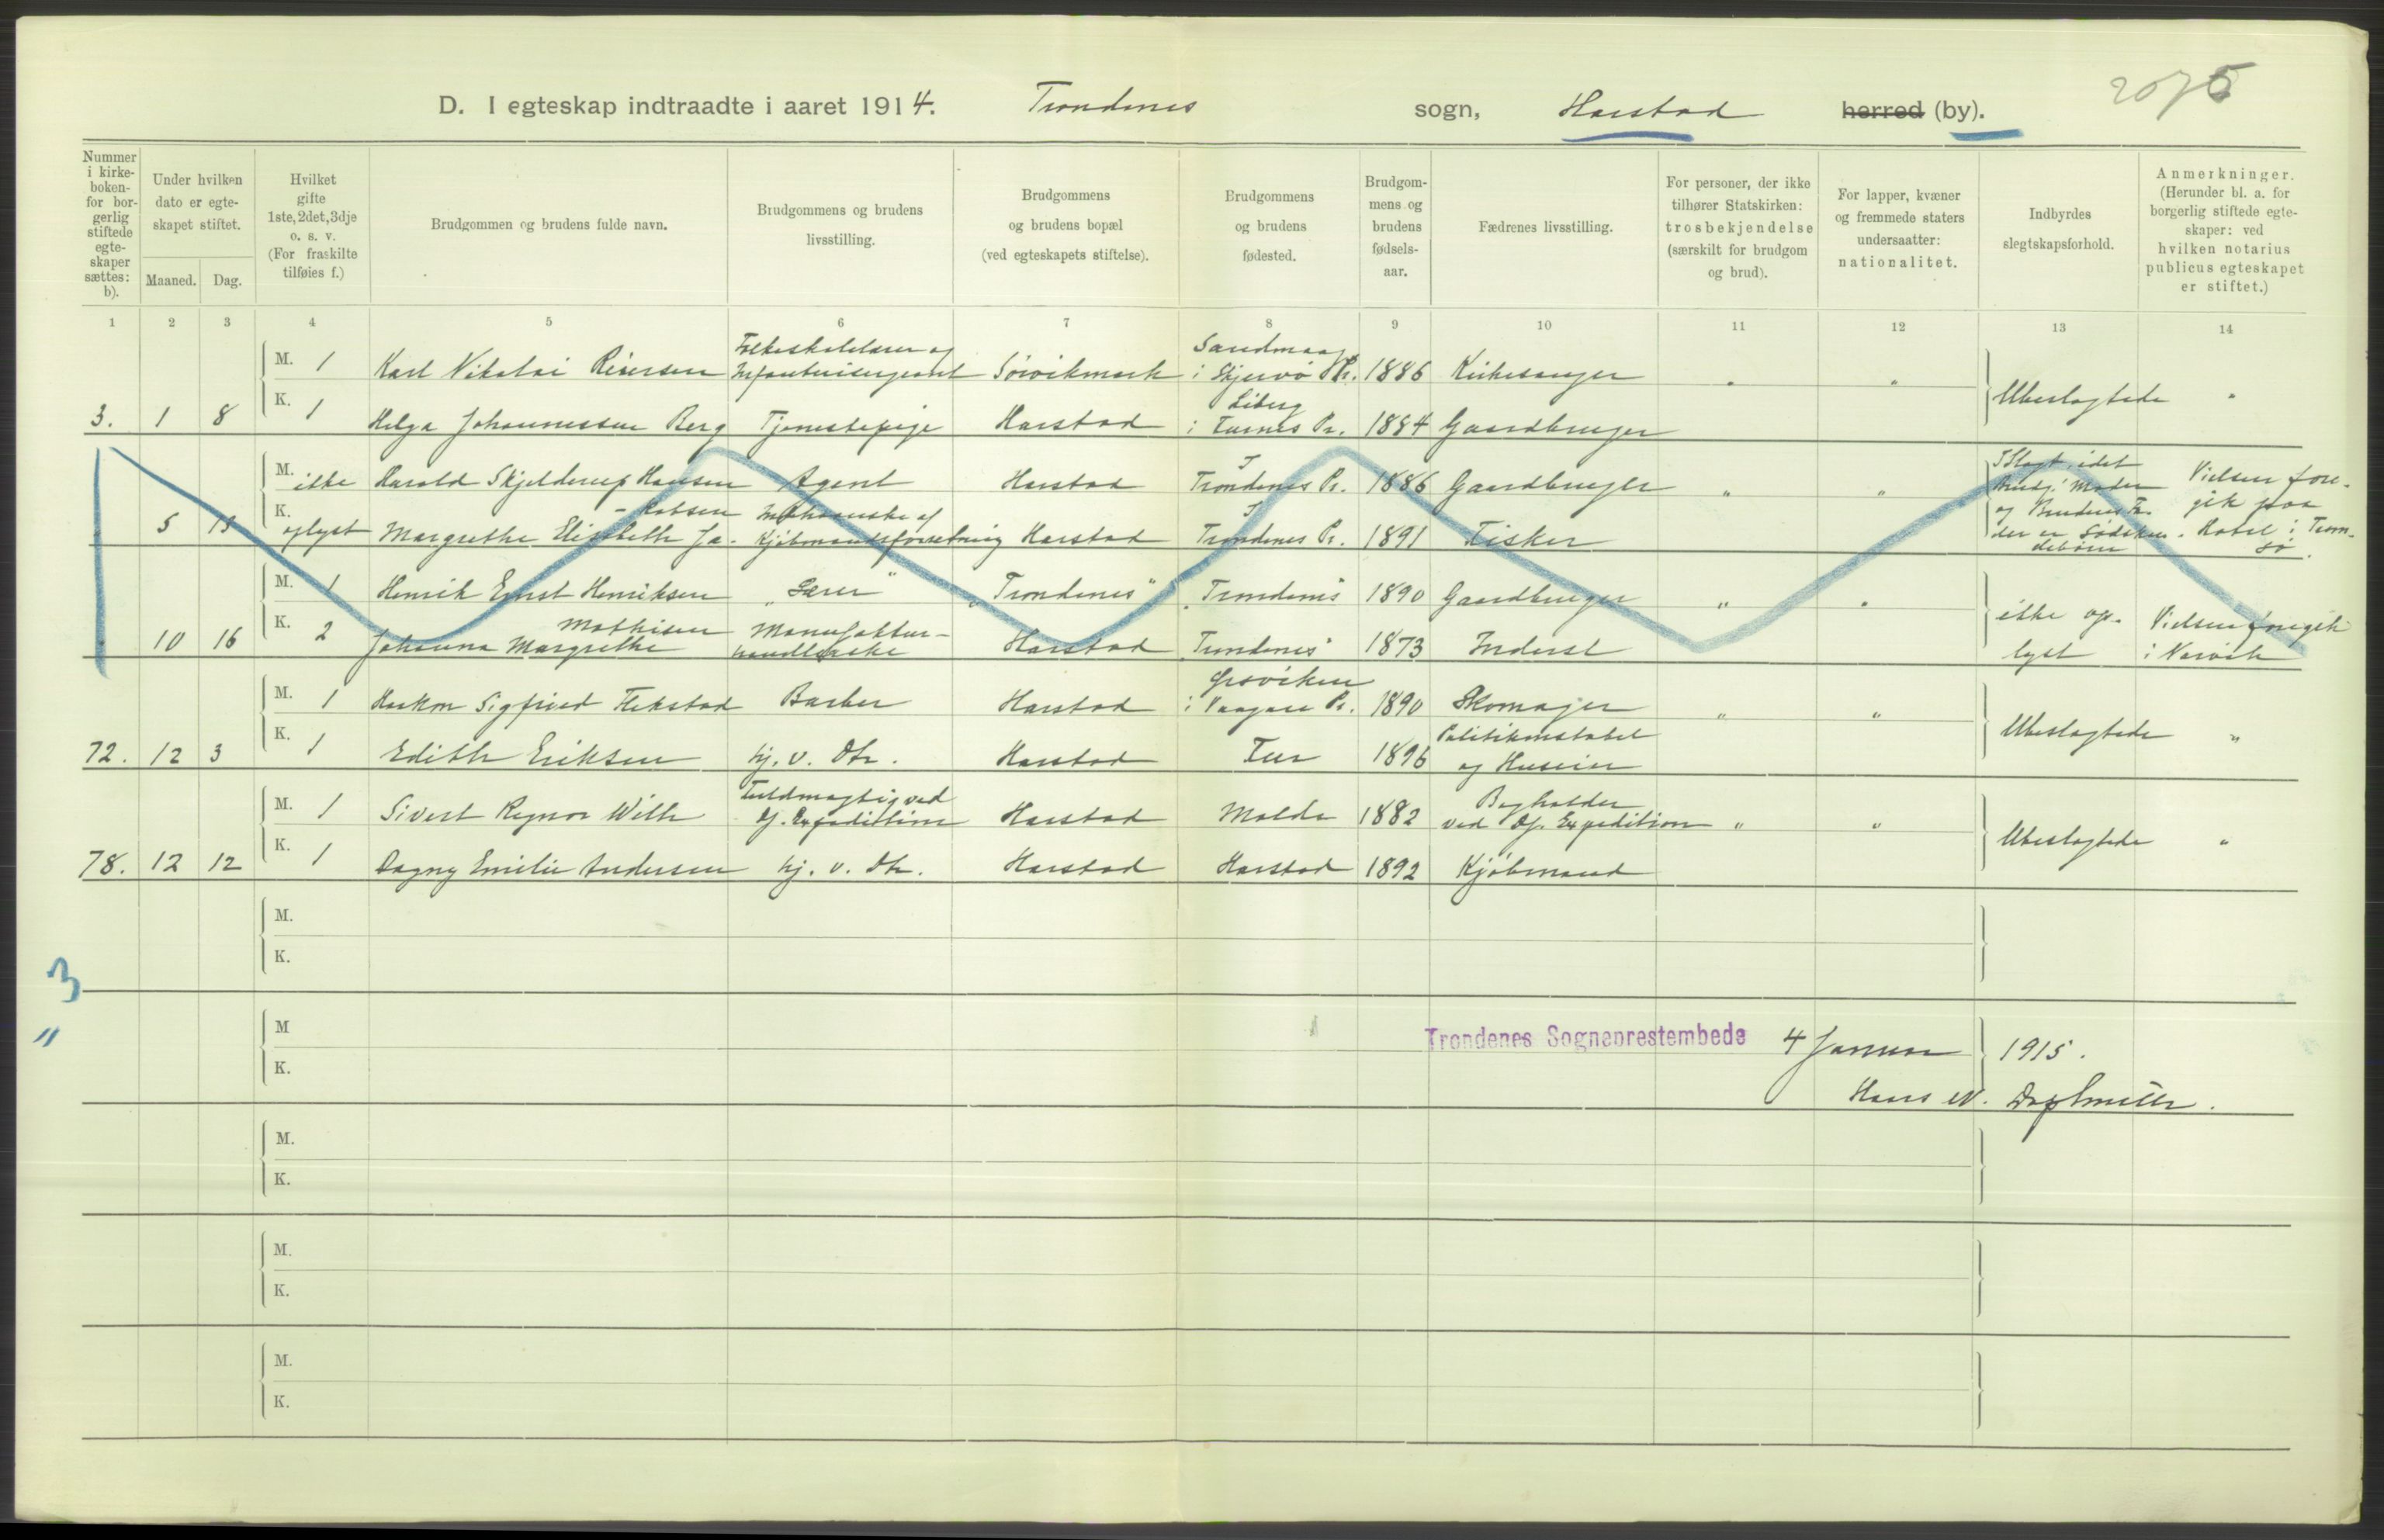 2075
D. I egteskap indtraadte i aaret 1914. Trondenes sogn, Harstad herred (by).
Nummer i kirkeboken- for borgerlig stiftede egteskaper sættes: b).
Under hvilken dato er egteskapet stiftet.
Maaned. Dag.
Hvilket gifte 1ste, 2det, 3dje o. s. v. (For fraskilte tilføies f.)
Brudgommen og brudens fulde navn.
Brudgommens og brudens livsstilling.
Brudgommens og brudens bopæl (ved egteskapets stiftelse).
Brudgommens og brudens fødested.
Brudgommens og brudens fødselsaar.
Fædrenes livsstilling.
For personer, der ikke tilhører Statskirken: trosbekjendelse (særskilt for brudgom og brud).
For lapper, kvæner og fremmede staters undersaatter: nationalitet.
Indbyrdes slegtskapsforhold.
Anmerkninger. (Herunder bl. a. for borgerlig stiftede egteskaper: ved hvilken notarius publicus egteskapet er stiftet.)
1 2 3 4 5 6 7 8 9 10 11 12 13 14
M. 1 Karl Nikolai Reiersen Folkeskolelærer og Infanterisergeant Sørvikmark Sandmaag i Skjervø Pr. 1886 Kirkesanger " "
3. 1 8 K. 1 Helga Johannessen Berg Tjenestepige Harstad i Turnes Pr. 1884 Gaardbruger Ubeslægtede "
M. ikke Harald Skjelderup Hansen Agent Harstad I Trondenes Pr. 1886 Gaardbruger " " I Slægt, idet Brudg. Moder og Brudens Fader er Sødskendebørn
5 13 K. oplyst Margrethe Elisabeth Jakobsen Indehaverske af Kjøbmandsforretning Harstad I Trondenes Pr. 1891 Fisker Vielsen foregik paa Hotel i Tromsø.
M. 1 Henrik Ernst Henriksen "Lærer" "Trondenes" "Trondenes 1890 Gaardbruger " "
10 16 K. 2 Johanna Margrethe Mathisen Manufakturhandlerske Harstad Trondenes 1873 Inderst ikke oplyst Vielsen foregik i Narvik
M. 1 Haakon Sigfried Flekstad Barber Harstad i Vaagan Pr. 1890 Skomager " "
72. 12 3 K. 1 Edith Eriksen hj. v. Dtr. Harstad 1896 Politikonstabel og Huseier Ubeslægtede "
M. 1 Sivert Ragnor With Fuldmægtig ved Df. Expedition Harstad Molde 1882 Bogholder ved Df. Expedition " "
78. 12 12 K. 1 Dagny Emilie Andersen hj. v. Dtr. Harstad Harstad 1892 Kjøbmand Ubeslægtede "
M.
K.
3
M
Trondenes Sogneprestembede 4 Januar 1915.
"
K.
Hans N.
M.
K.
M.
K.
M.
K.